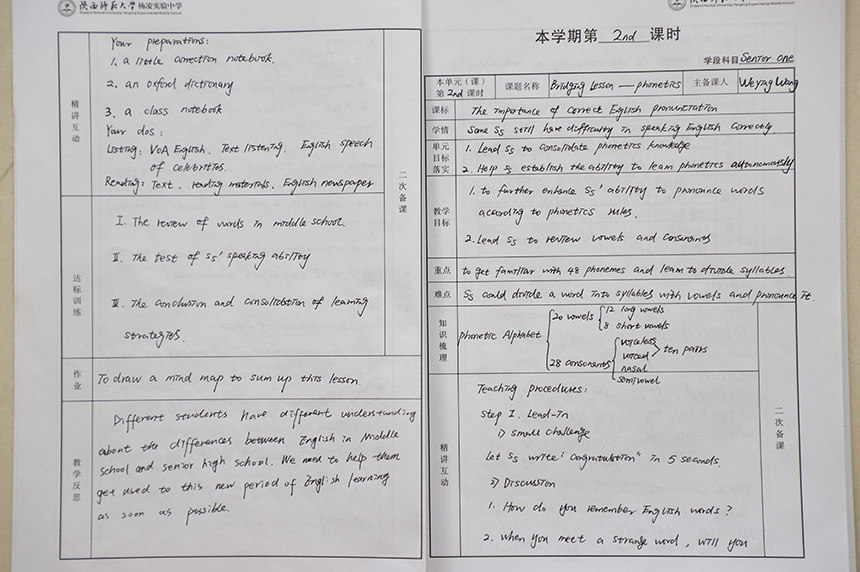 陕西师范大学 杨凌实验中学
精讲互动
Your preparations:
1. a little correction notebook.
2. an oxford dictionary
3. a class notebook
Your dos:
Listing: VOA English. Text listening. English speech
of celebrities.
Reading: Text. reading materials. English newspaper
二次备课
达标训练
I. The review of words in middle school.
II. The test of Ss' speaking ability
III. The conclusion and consolidation of learning
strategies.
作业
To draw a mind map to sum up this lesson.
教学反思
Different students have different understanding
about the differences between English in Middle
school and senior high school. We need to help them
get used to this new period of English learning
as soon as possible.
陕西师范大学 杨凌实验中学
本学期第 2nd 课时
学段科目 Senior one
本单元(课)
第 2nd 课时
课题名称
Bridging Lesson — phonetics
主备课人
Weying Wang
课标
The importance of correct English pronunciation
学情
Some Ss still have difficulty in speaking English correctly.
单元目标落实
1. Lead Ss to consolidate phonetics knowledge
2. Help Ss establish the ability to learn phonetics autonomously
教学目标
1. to further enhance Ss' ability to pronounce words
according to phonetics rules.
2. Lead Ss to review vowels and consonants
重点
to get familiar with 48 phonemes and learn to divide syllables.
难点
Ss could divide a word into syllables with vowels and pronounce it.
知识梳理
phonetic Alphabet
20 vowels
12 long vowels
8 short vowels
28 consonants
voiceless
voiced
ten pairs
nasal
semivowel
精讲互动
Teaching procedures:
Step I. Lead-in
1) small challenge
Let Ss write "congratulation" in 5 seconds.
2) Discussion
1. How do you remember English words?
2. When you meet a strange word, will you
二次备课